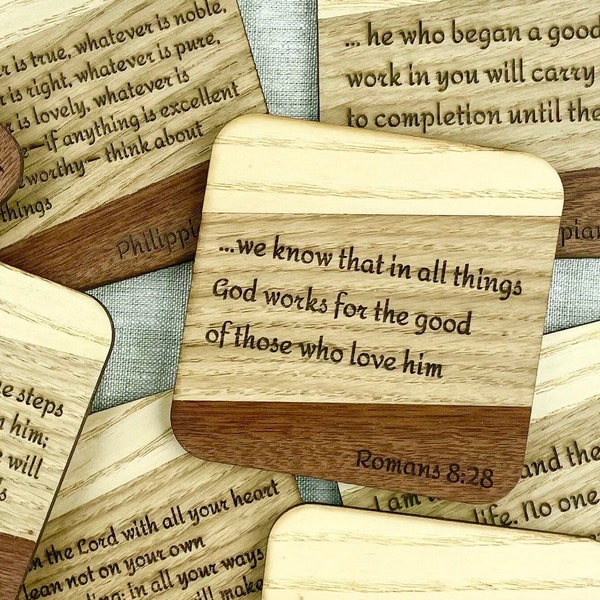 er is true, whatever is noble,
er is right, whatever is pure,
er is lovely, whatever is
—if anything is excellent
eworthy— think about
things
Philippi
... he who began a good
work in you will carry
to completion until the
pian
...we know that in all things
God works for the good
of those who love him
Romans 8:28
e steps
him;
e will
in the Lord with all your heart
lean not on your own
in all your ways
will make
and the
I am
life. No one